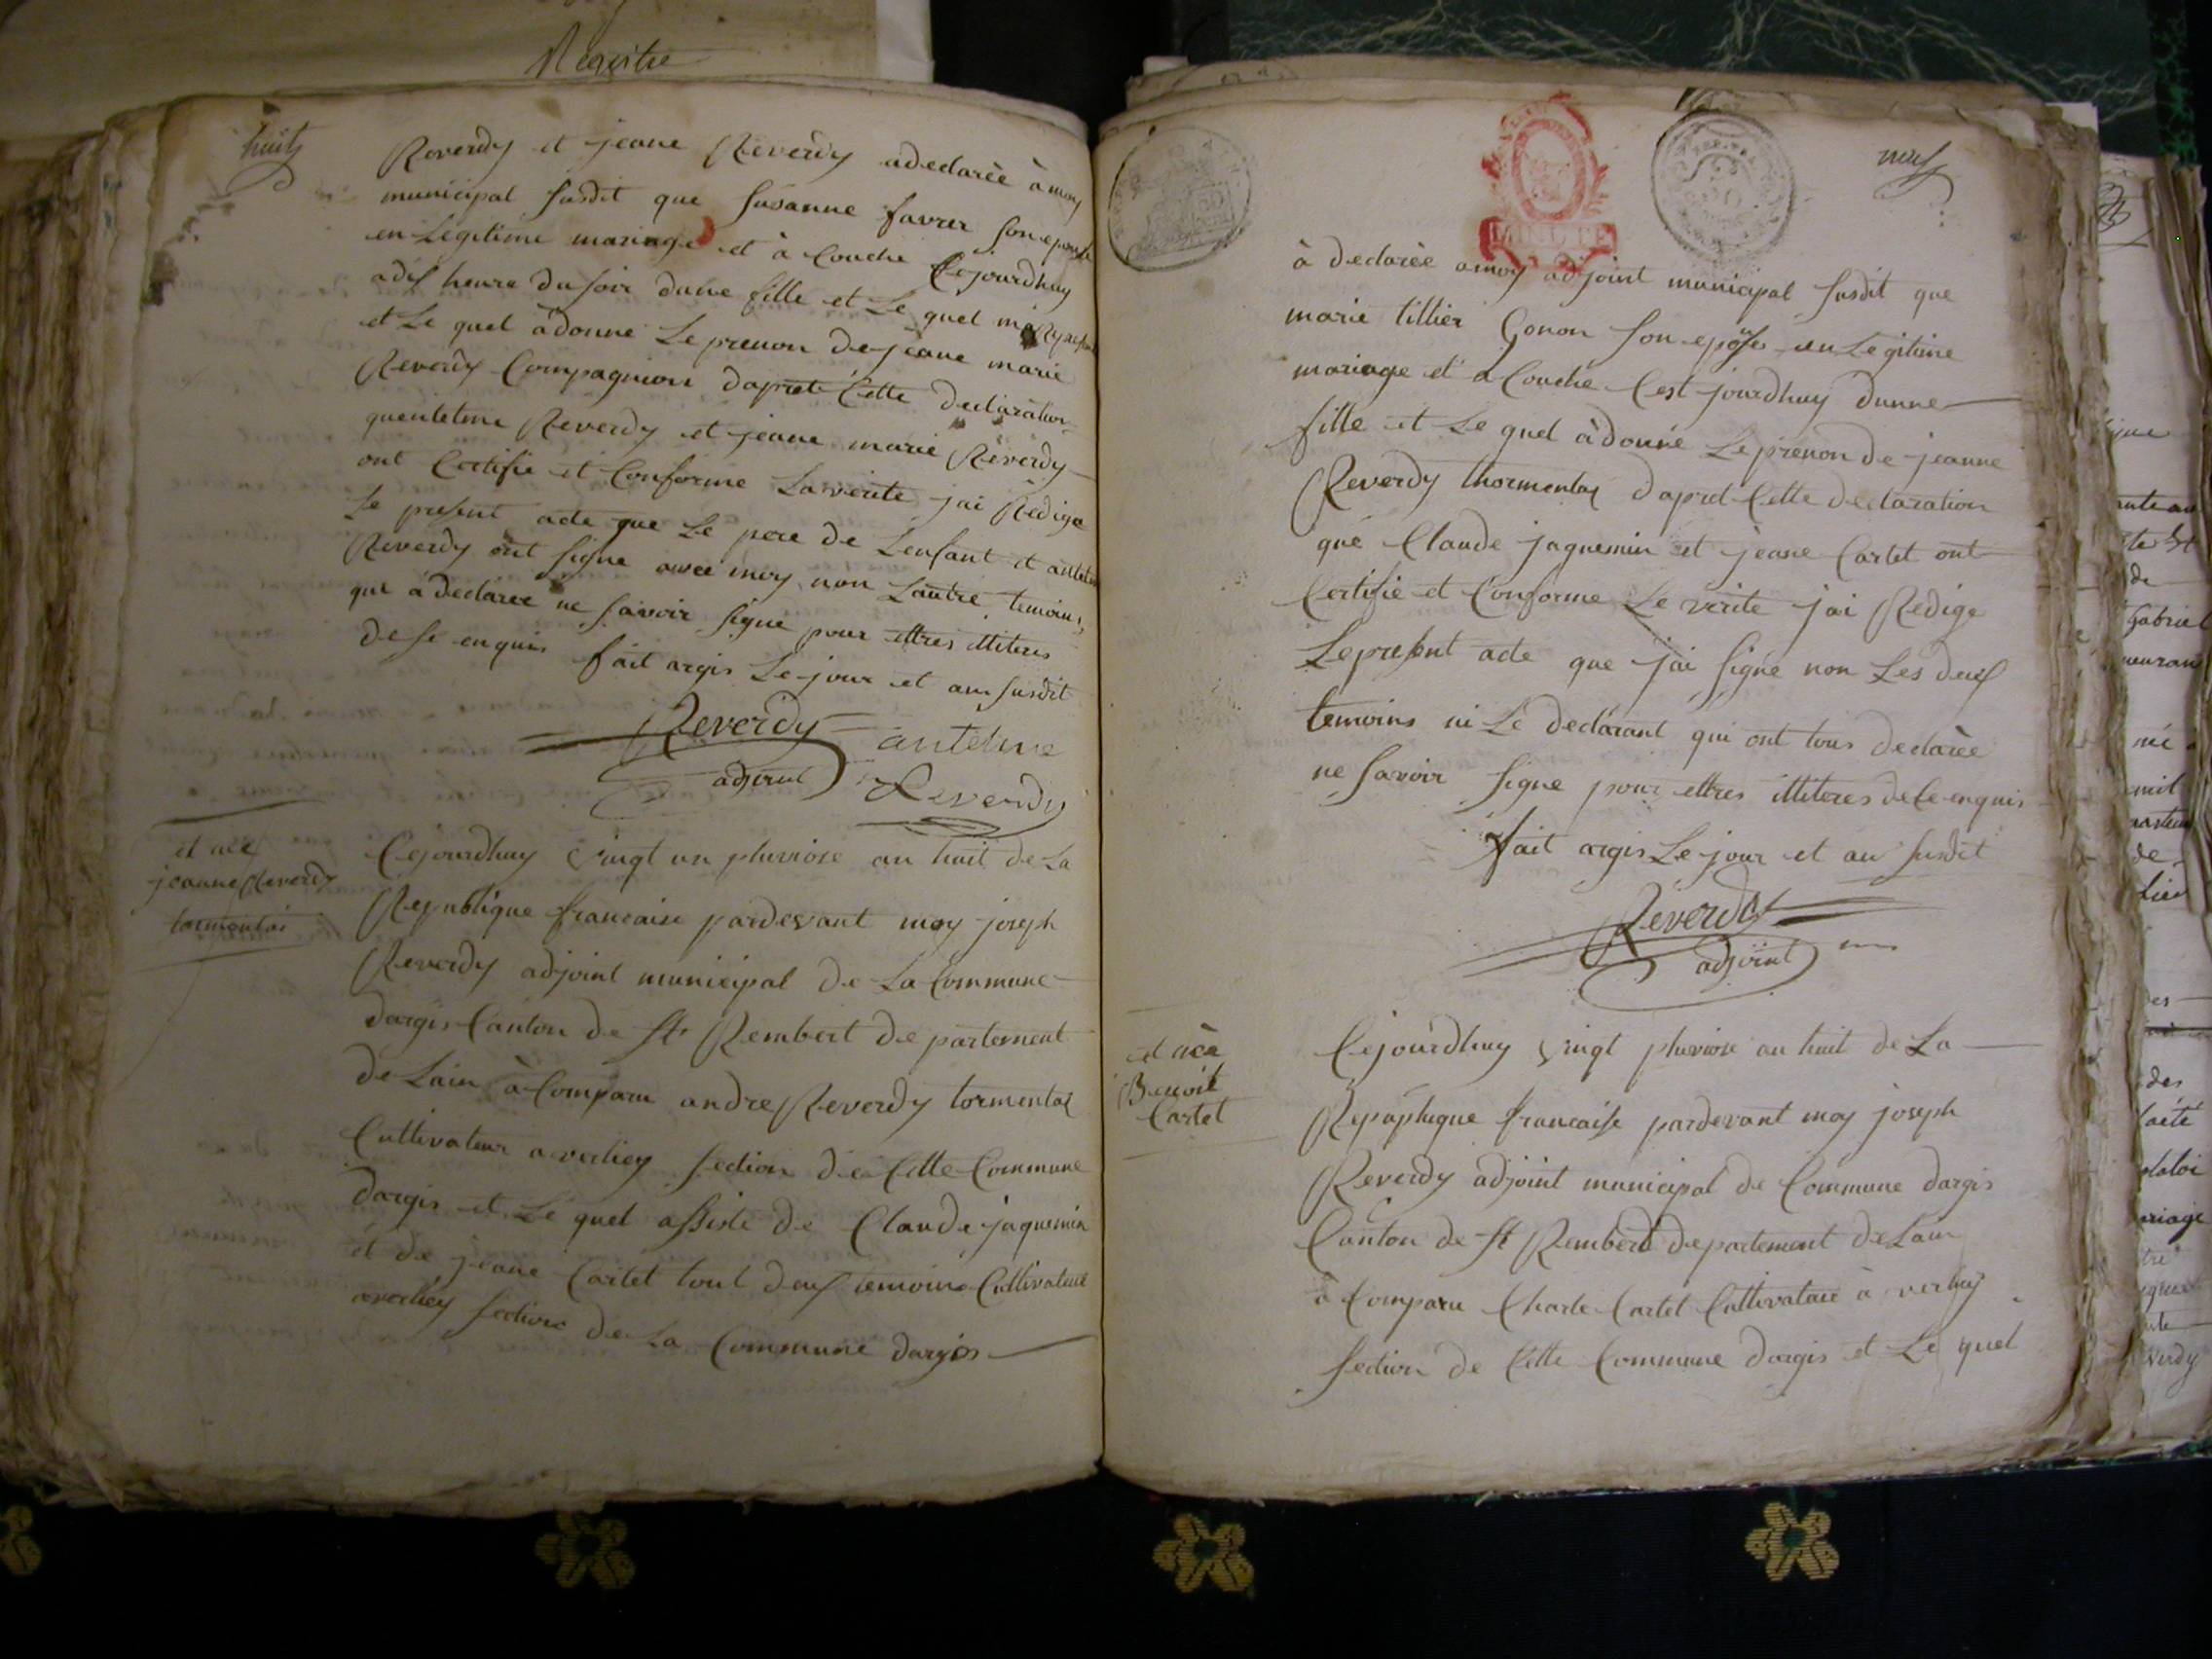 Registre
huit
Reverdy et jeane Reverdy adeclarèe à moy
municipal susdit que susanne favrer son epouse
en Legitime mariage et à Couche Cejourdhuy
adix heure du soir dune fille et Le quel ma
et Le quel àdonne Le prenon de jeane marie
Reverdy Compagnion daprét Cette declaration
quentelme Reverdy et jeane marie Reverdy
ont Certifie et Conforme La verite jai Redige
Le present acte que Le pere de Lenfant et
Reverdy ont signe avec moy non Lautre temoins
qui à declaree ne savoir signe pour ettres illiteres
de se enquis fait argis Le jour et an susdit
Reverdy antelme
adjoint Reverdy
et nèe
jeanne Reverdy
tormentas
Cejourdhuy vingt un pluviose an huit de La
Republique francaise pardevant moy joseph
Reverdy adjoint municipal de La Commune
dargis Canton de St Rembert departement
de Lain à Comparu andre Reverdy tormentas
Cultivateur averliey section de Cette Commune
dargis et Le quel assiste de Claude jaquemin
et de jeane Cartet tout deux temoins Cultivateur
averliey section de La Commune dargis
MINUTE
neuf
à declarèe amoy adjoint municipal susdit que
marie tillier Gonon son epose en Legitime
mariage et a Couche Cest jourdhuy dunne
fille et Le quel àdonné Le prenon de jeanne
Reverdy thormentas daprest Cette declaration
que Claude jaquemin et jeane Cartet ont
Certifie et Conforme Le verite jai Redige
Le present acte que jai signé non Les deux
temoins ni Le declarant qui ont tous declarèe
ne savoir signe pour ettres illiteres de Ce enquis
fait argis Le jour et an susdit
Reverdy
adjoint
et nèe
Benoit
Cartet
Cejourdhuy vingt pluviose an huit de La
Repaplugue francaise pardevant moy joseph
Reverdy adjoint municipal de Commune dargis
Canton de St Rembert departement de Lain
à Comparu Charle Cartet Cultivateur à verliey
section de Cette Commune dargis et Le quel